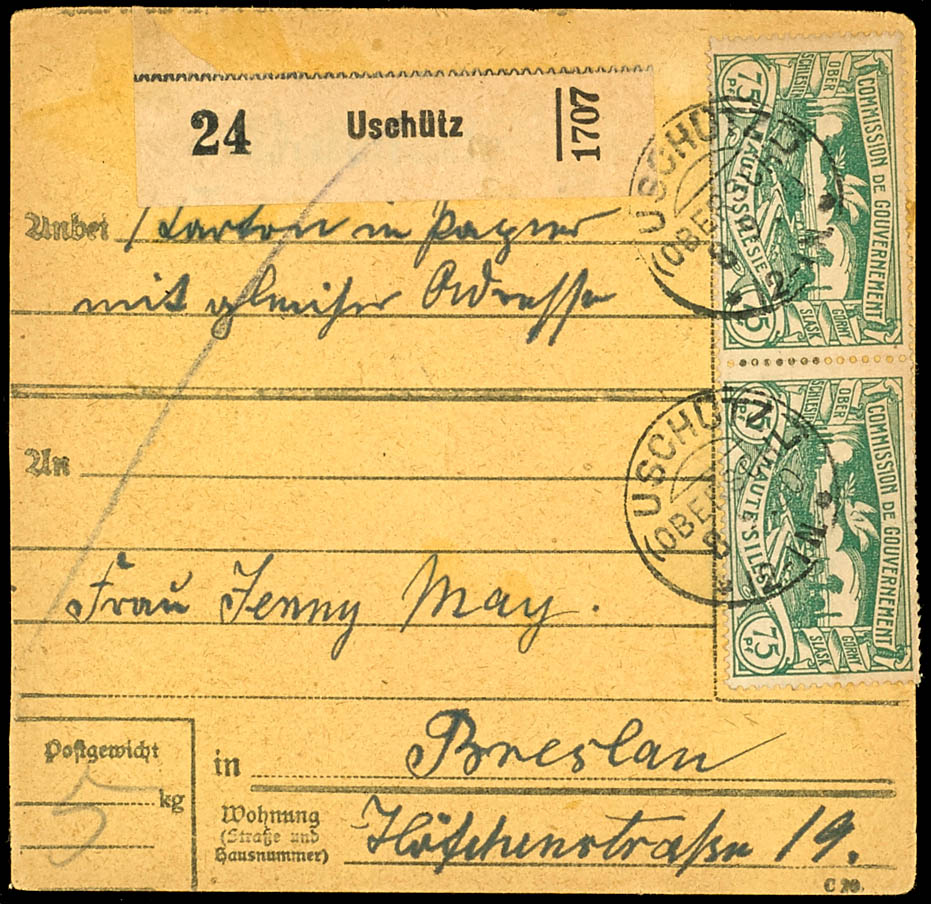 24 Uschütz 1707
Anbei 1 Karton in Papier
mit gleicher Adresse
An
Frau Jenny May.
Postgewicht
5 kg
in Breslau
Wohnung
(Straße und
Hausnummer)
Höfchenstraße 19.
C 20.
COMMISSION DE GOUVERNEMENT
OBER
SCHLESIEN
75
HAUTE SILÉSIE
GÓRNY
ŚLĄSK
75
USCHÜTZ
(OBERSCHL
COMMISSION DE GOUVERNEMENT
OBER
SCHLESIEN
75
HAUTE SILÉS
GÓRNY
ŚLĄSK
75 Pf
USCHÜTZ
(OBER